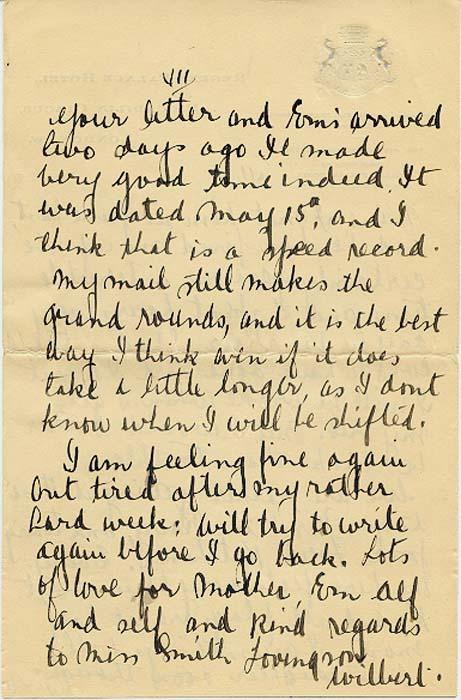 VII
Your letter and Ern's arrived
two days ago It made
very good time indeed. It
was dated May 15th, and I
think that is a speed record.
My mail still makes the
grand rounds, and it is the best
way I think even if it does
take a little longer, as I dont
know when I will be shifted.
I am feeling fine again
but tired after my rather
hard week: Will try to write
again before I go back. Lots
of love for Mother, Ern Alf
and self and kind regards
to Miss Smith Loving son
Wilbert.